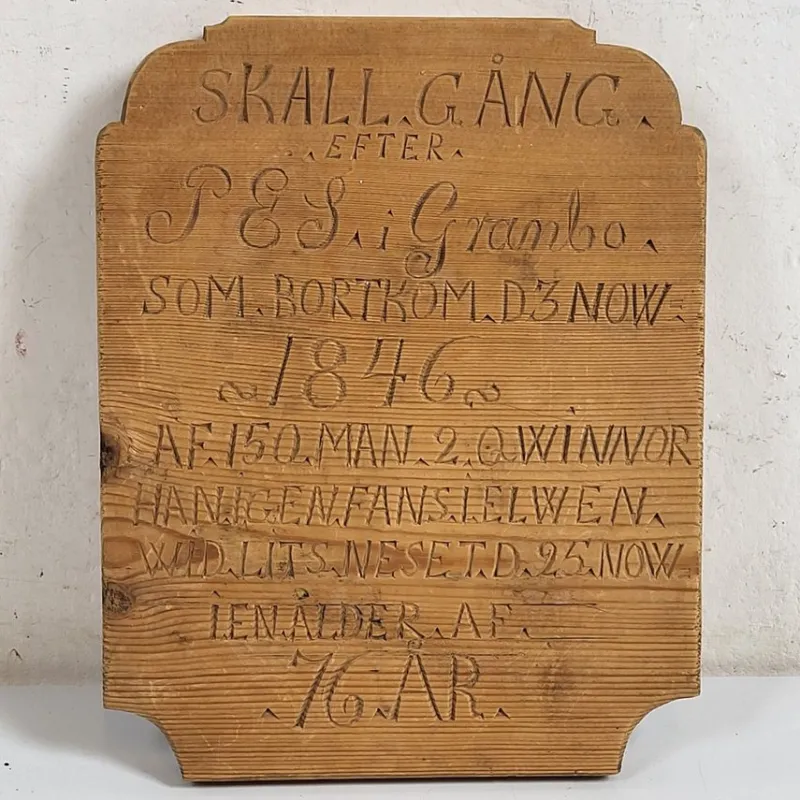 SKALL.GÅNG.
.EFTER.
PES. i Granbo.
SOM.BORTKOM.D3NOW.
~1846~
AF.150.MAN.2.QWINNOR
HAN.IGEN.FANS.I.ELWEN.
WID.LITS.NESET.D.25.NOW.
I.EN.ÅLDER.AF.
.76.ÅR.